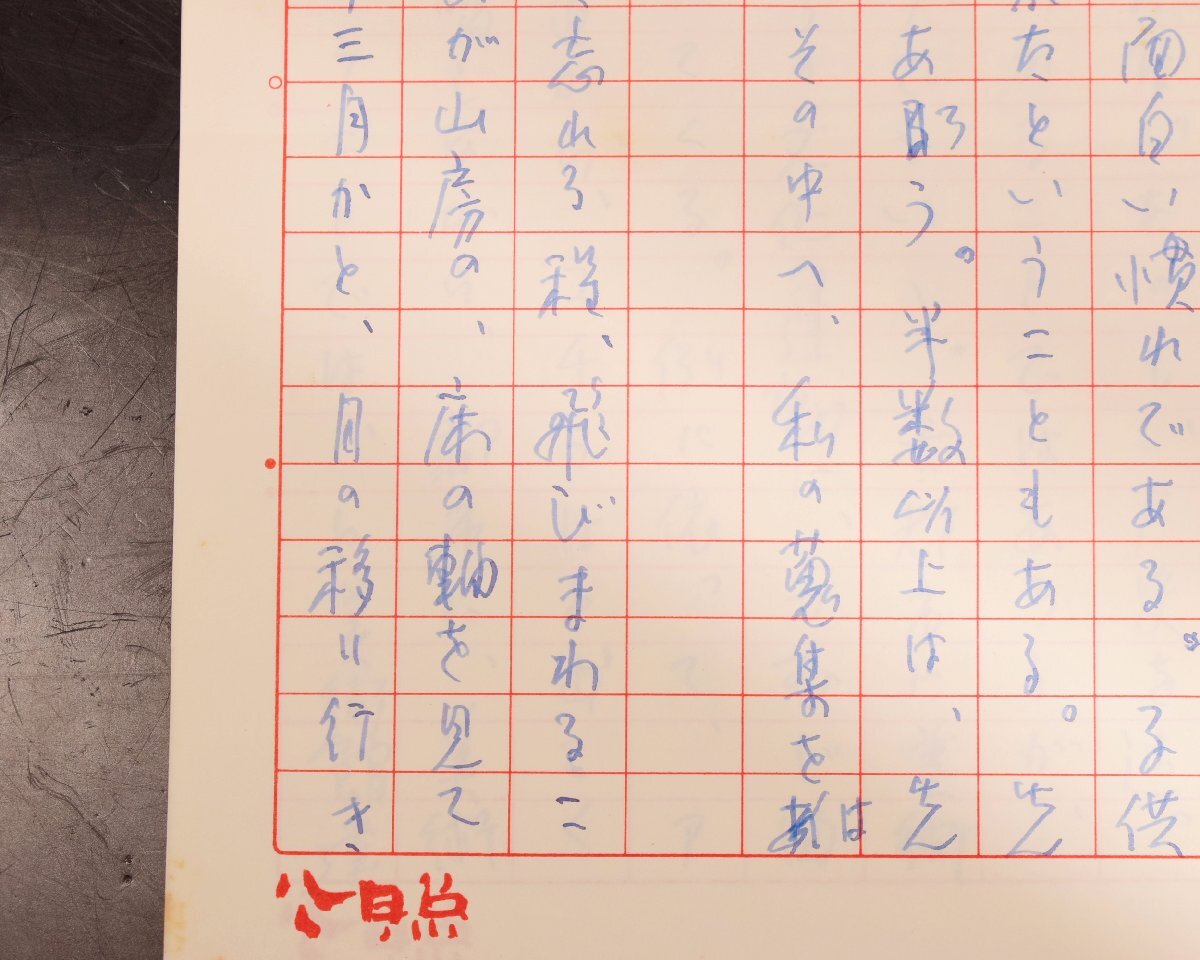 面白い慣れである。子供
たということもある。先
あろう。半数以上は、先
その中へ、私の蒐集をは
忘れる程、飛びまわるこ
が山房の、床の軸を見て
三月かと、月の移り行き、